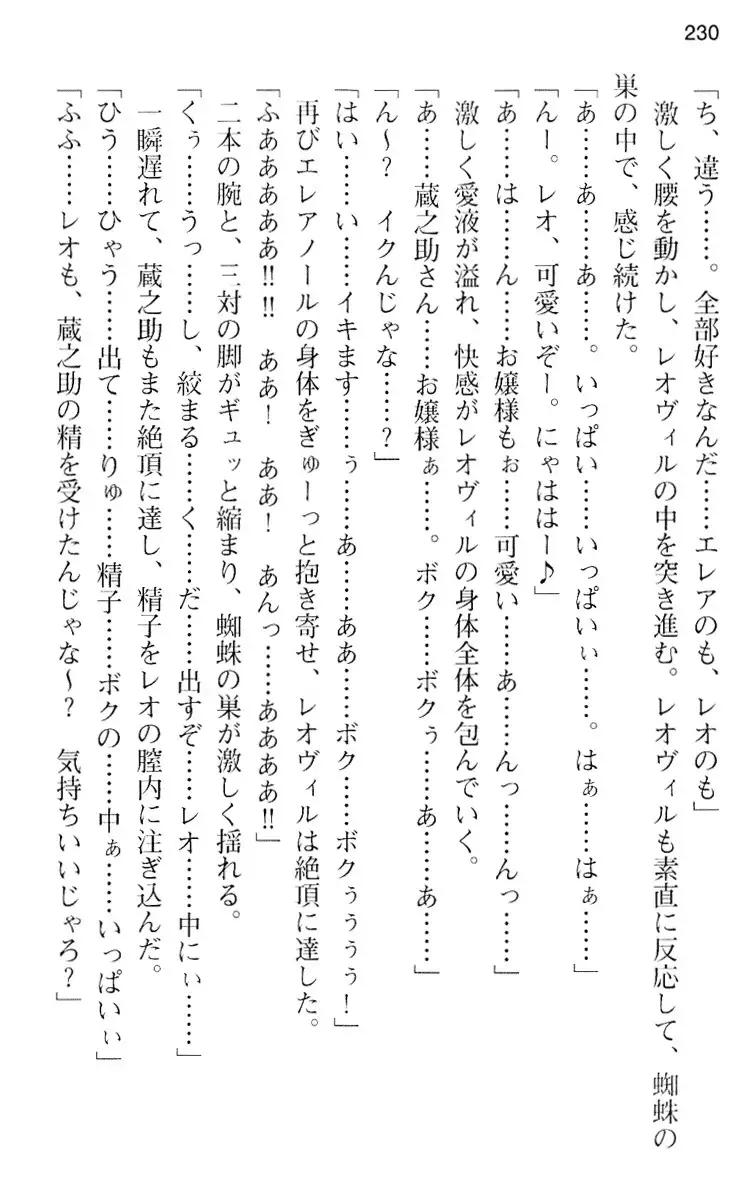 230
「ち、違う……。全部好きなんだ……エレアのも、レオのも」
激しく腰を動かし、レオヴィルの中を突き進む。レオヴィルも素直に反応して、蜘蛛の
巣の中で、感じ続けた。
「あ……あ……あ……。いっぱい……いっぱいぃ……。はぁ……はぁ……」
「んー。レオ、可愛いぞー。にゃははー♪」
「あ……は……ん……お嬢様もぉ……可愛い……あ……んっ……んっ……」
激しく愛液が溢れ、快感がレオヴィルの身体全体を包んでいく。
「あ……蔵之助さん……お嬢様ぁ……。ボク……ボクぅ……あ……あ……」
「ん～？　イクんじゃな……？」
「はい……い……イキます……ぅ……あ……ああ……ボク……ボクぅぅぅぅ！」
再びエレアノールの身体をぎゅーっと抱き寄せ、レオヴィルは絶頂に達した。
「ふあああああ!!!!　ああ！　ああ！　あんっ……ああああ!!」
二本の腕と、三対の脚がギュッと縮まり、蜘蛛の巣が激しく揺れる。
「くぅ……うっ……し、絞まる……く……だ……出すぞ……レオ……中にぃ……」
一瞬遅れて、蔵之助もまた絶頂に達し、精子をレオの膣内に注ぎ込んだ。
「ひう……ひゃう……出て……りゅ……精子……ボクの……中ぁ……いっぱいぃ」
「ふふ……レオも、蔵之助の精を受けたんじゃな～？　気持ちいいじゃろ？」